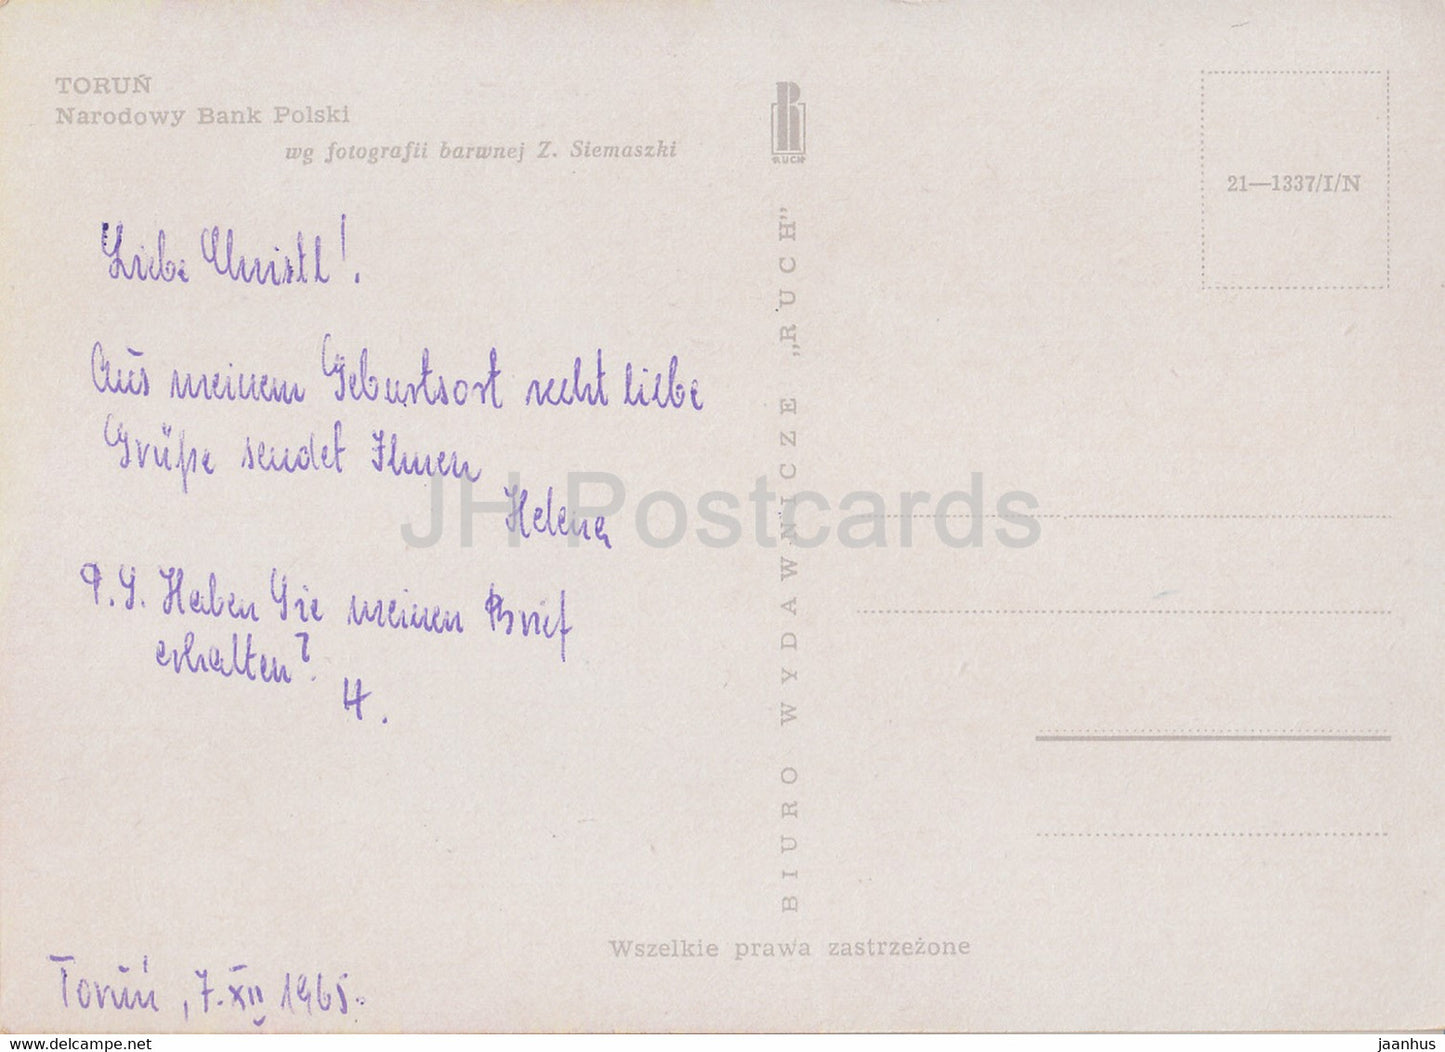 TORUŃ
Narodowy Bank Polski
wg fotografii barwnej Z. Siemaszki
RUCH
21—1337/I/N
Liebe Christl!
Aus meinem Geburtsort recht liebe
Grüße sendet Ihnen
Helena
P.S. Haben Sie meinen Brief
erhalten?
H.
Toruń, 7.XII 1965.
BIURO WYDAWNICZE „RUCH”
Wszelkie prawa zastrzeżone
JH Postcards
www.delcampe.net
jaanhus